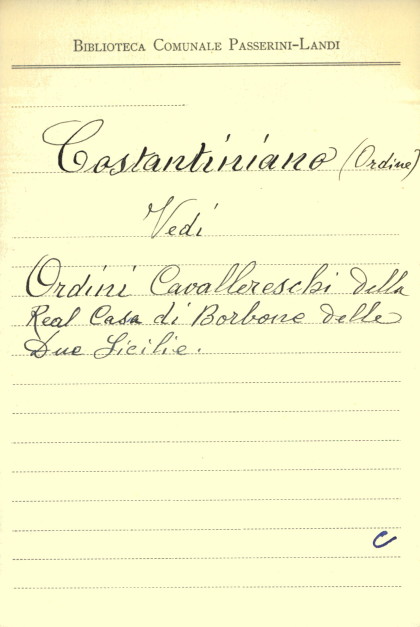 Biblioteca Comunale Passerini-Landi
Costantiniano (Ordine)
Vedi
Ordini Cavallereschi della
Real Casa di Borbone delle
Due Sicilie.
C